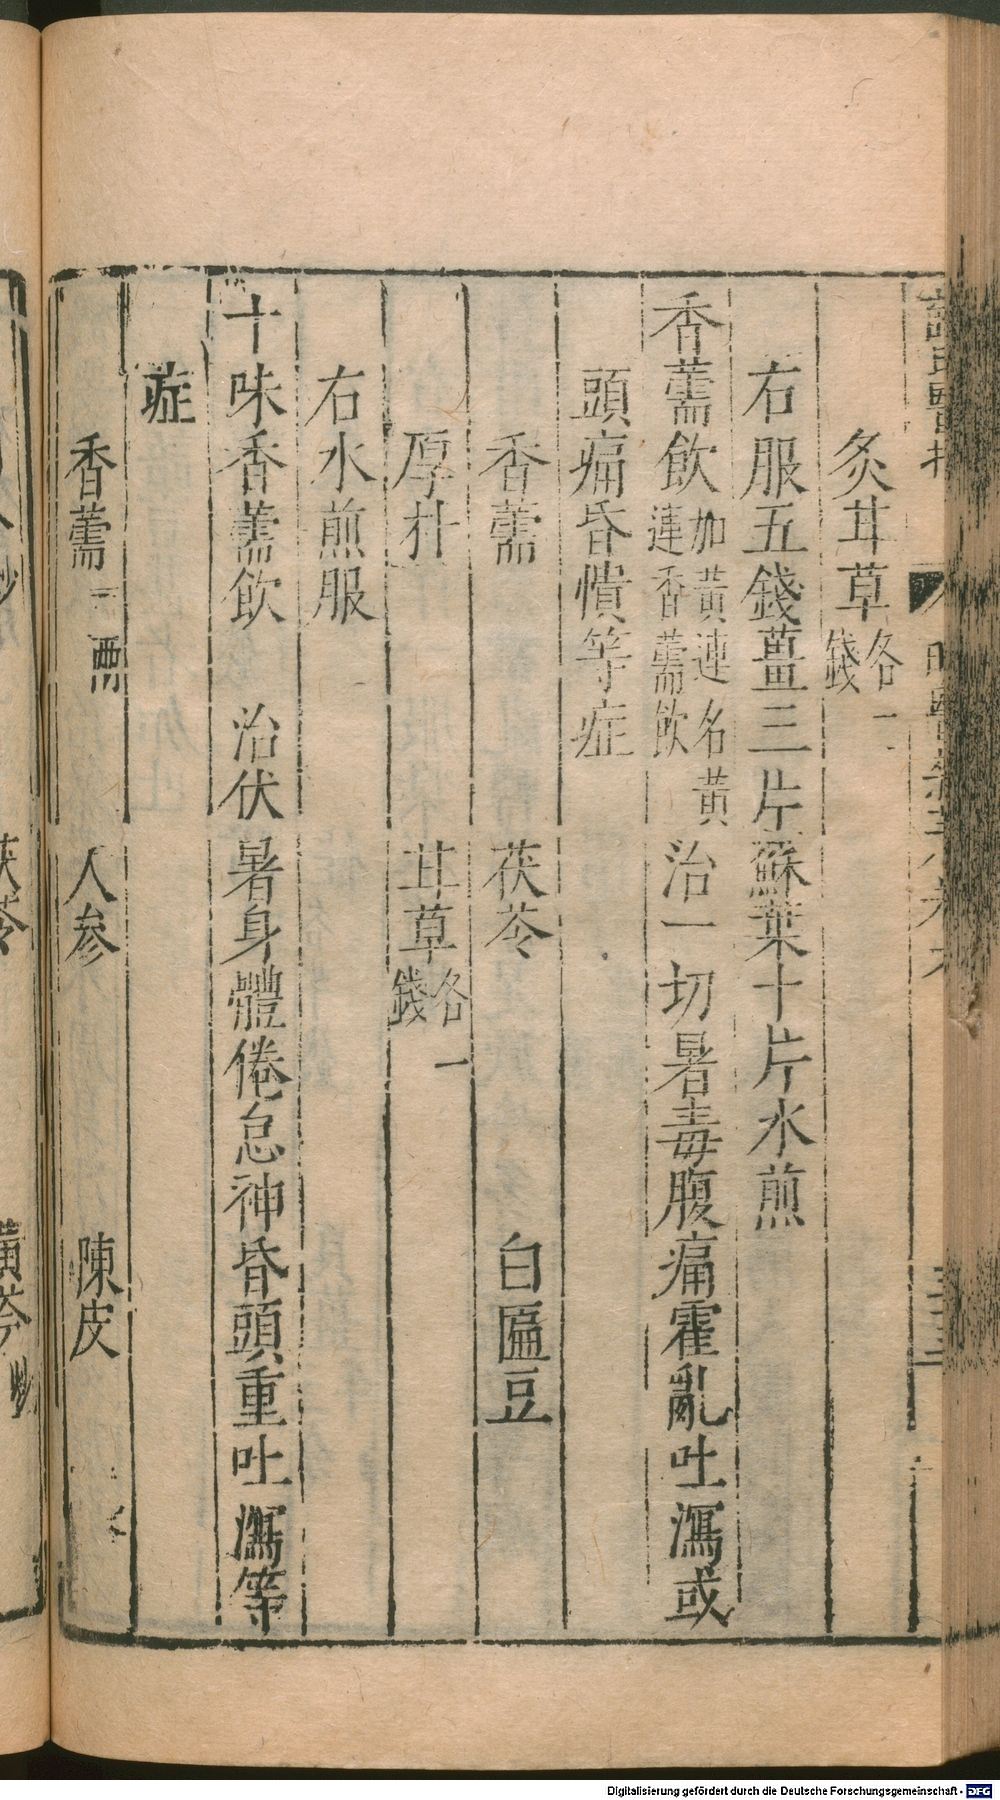 炙甘草各一錢
右服五錢薑三片蘇葉十片水煎
香薷飲加黃連名黃連香薷飲治一切暑毒腹痛霍亂吐瀉或
頭痛昏憒等症
香薷 茯苓 白匾豆
厚朴 甘草各一錢
右水煎服
十味香薷飲 治伏暑身體倦怠神昏頭重吐瀉等
症
香薷 人參 陳皮
茯苓 黃芩炒
Digitalisierung gefördert durch die Deutsche Forschungsgemeinschaft - DFG